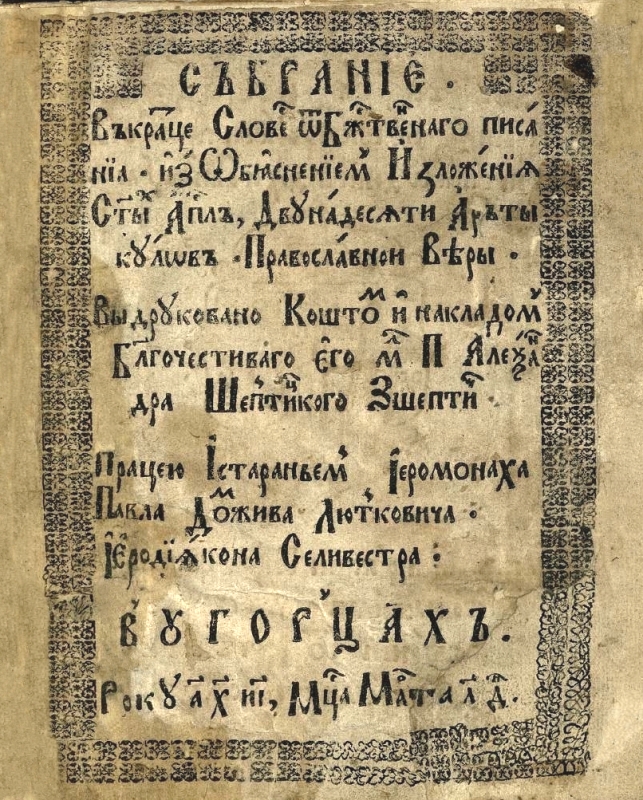 СЪБРАНІЕ.
Въкра́тце Слове́с ѿБж҃твенаго писа́
нїа · и҆з̾ Ѡбꙗ҆сненїем̾ И҆зложе́нїѧ
Ст҃ы́х А҆пл҃ъ, Двуна́десѧти А҆рътыˋ
ку́лѡвъ · Правосла́внои Вѣ́ры ·
Выдруковано Коштом и҆ накладом̾
Благочестиваго є҆го мл҃ П Алеѯан
дра Шептицкого Зшептиц ·
Працею І҆старанъем̾ І҆еромонаха
Павла Домжива Лютковича :
І҆е҆родїꙗ́кона Селивестра :
В̾ УГОРЦАХЪ.
Року ҂а҃ х҃ и҃і, Мц҃а Марта л҃ д҃.